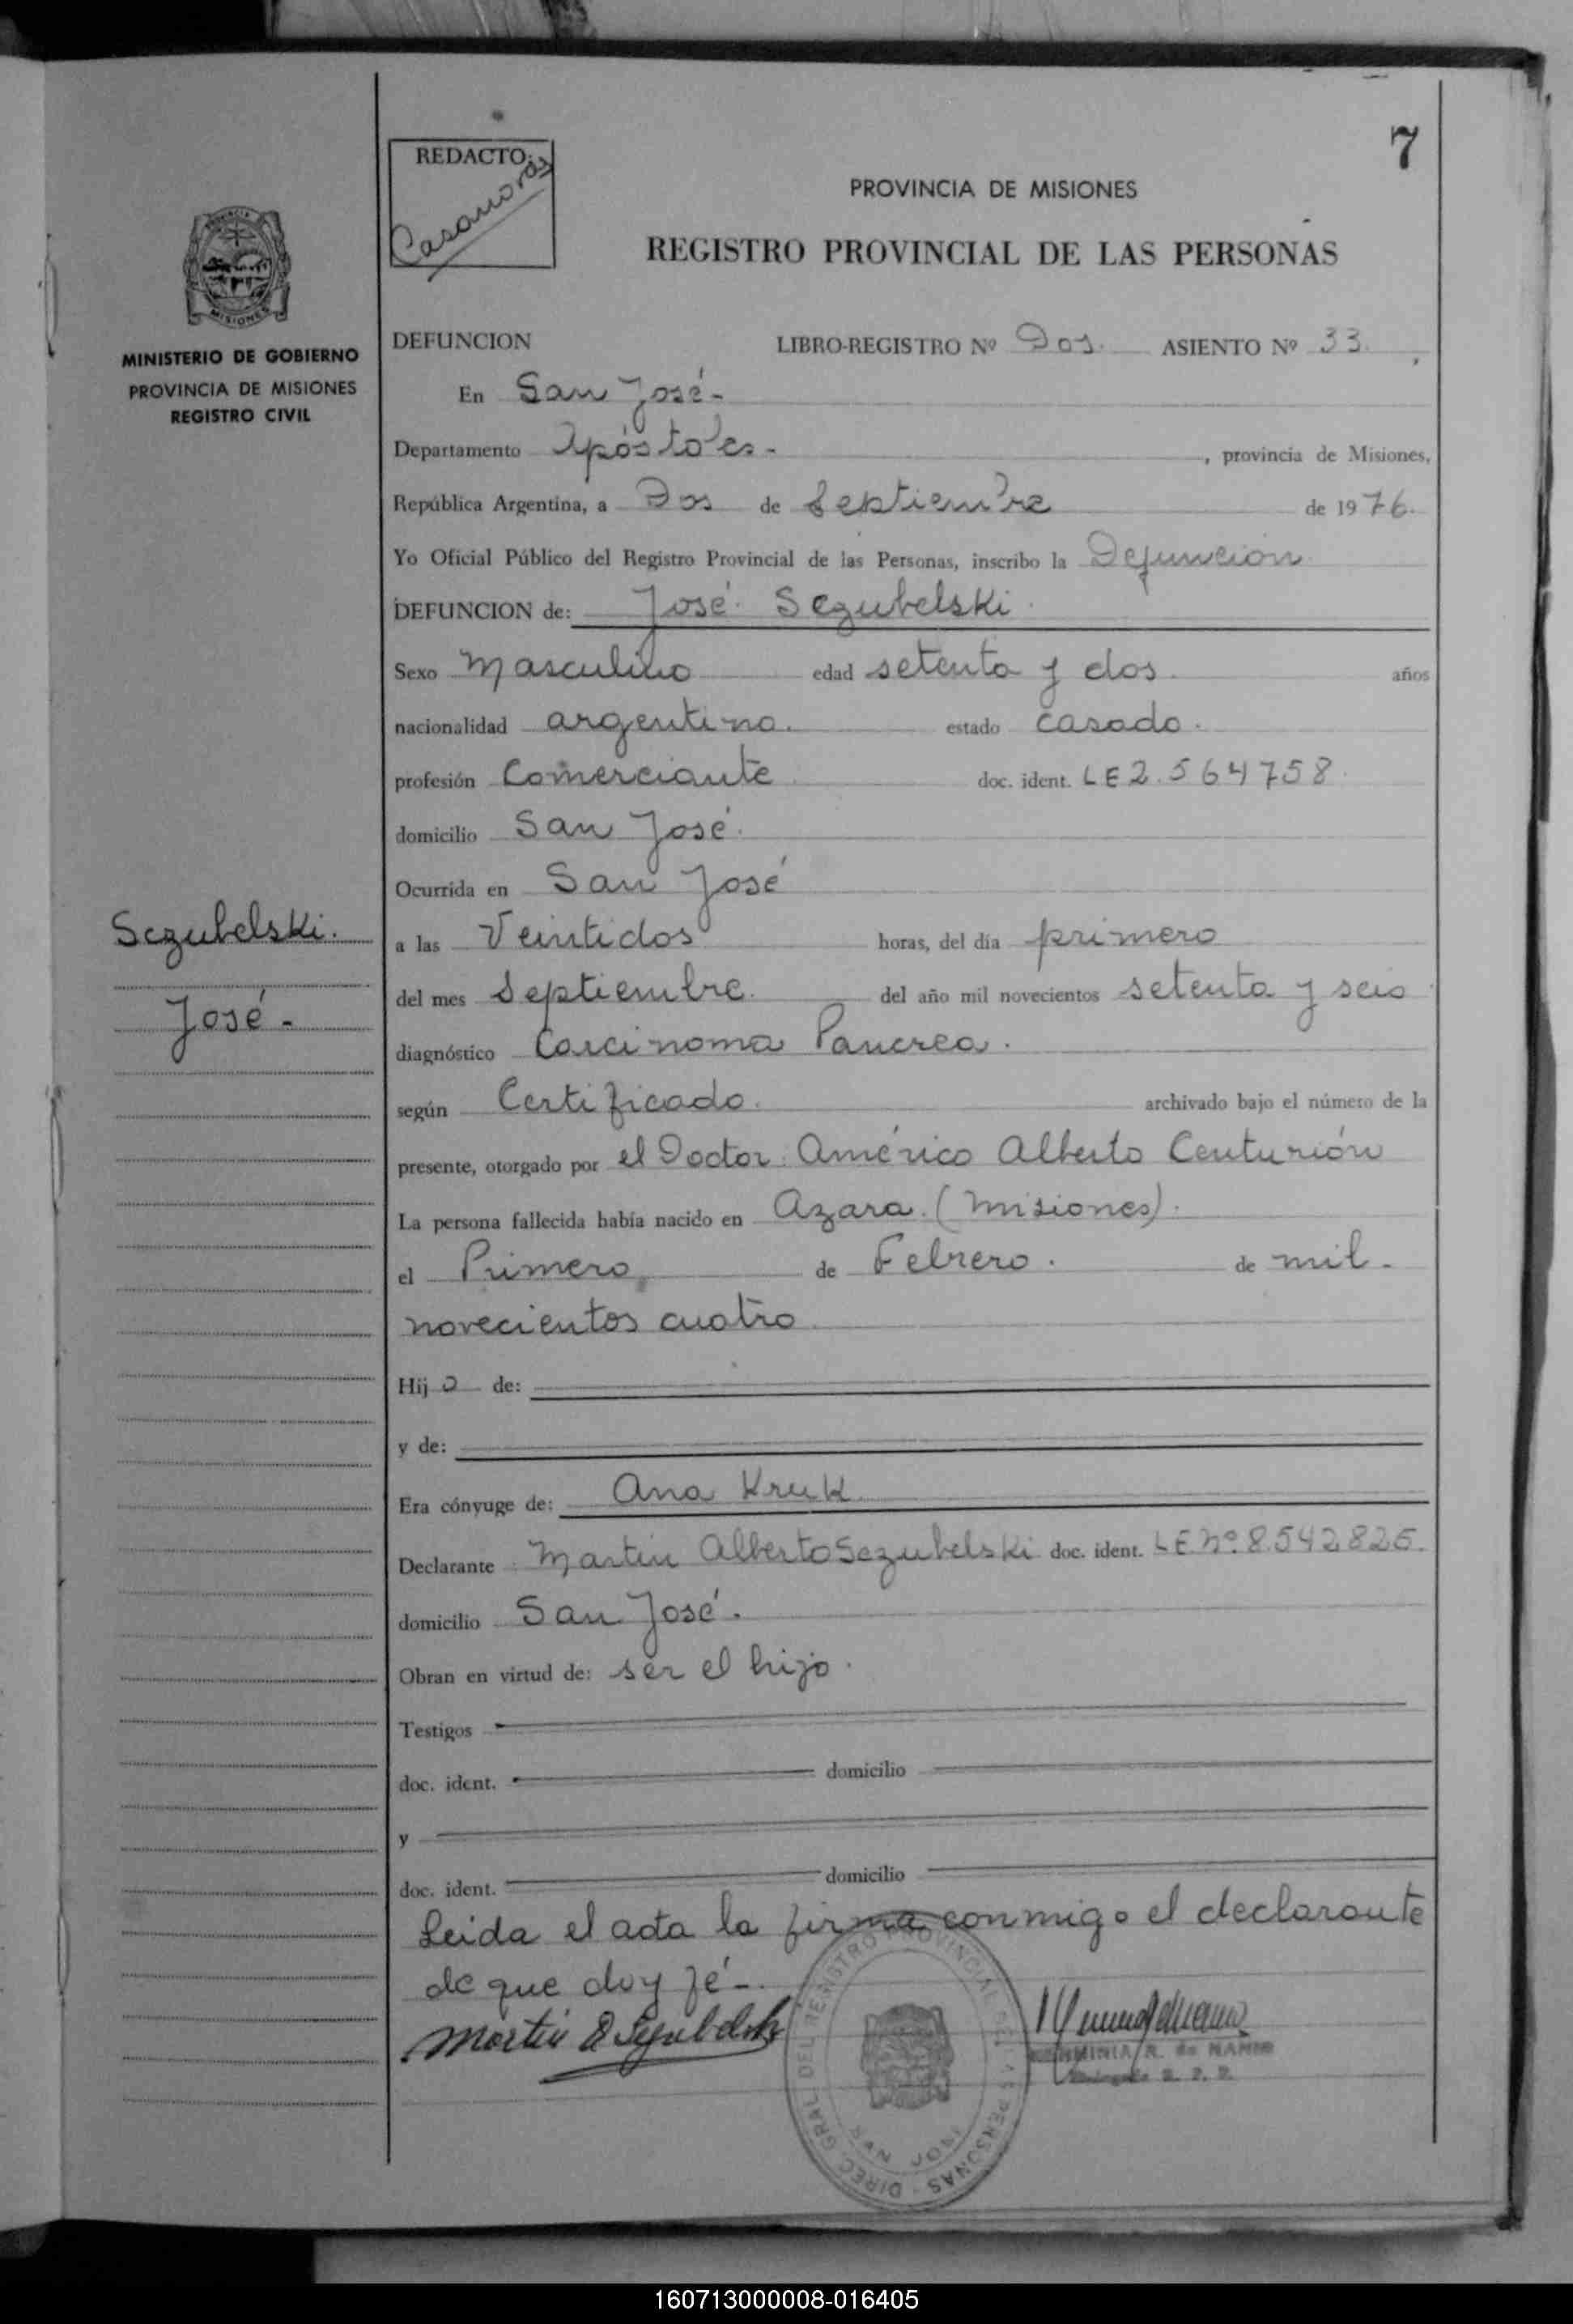 7
REDACTO:
Casanovas
PROVINCIA DE MISIONES
REGISTRO PROVINCIAL DE LAS PERSONAS
PROVINCIA DE
MISIONES
MINISTERIO DE GOBIERNO
PROVINCIA DE MISIONES
REGISTRO CIVIL
DEFUNCION LIBRO-REGISTRO Nº Dos. ASIENTO Nº 33.
En San José-
Departamento Apóstoles- , provincia de Misiones,
República Argentina, a Dos de Septiembre de 1976.
Yo Oficial Público del Registro Provincial de las Personas, inscribo la Defunción
DEFUNCION de: José Sczubelski.
Sexo Masculino edad setenta y dos años
nacionalidad argentina. estado casado.
profesión Comerciante doc. ident. LE 2.564758.
domicilio San José.
Ocurrida en San José
Sczubelski.
José-
a las Veintidos horas, del día primero
del mes Septiembre. del año mil novecientos setenta y seis
diagnóstico Carcinoma Pancrea.
según Certificado. archivado bajo el número de la
presente, otorgado por el Doctor: Américo Alberto Centurión
La persona fallecida había nacido en Azara. (Misiones).
el Primero de Febrero. de mil-
novecientos cuatro
Hijo de:
y de:
Era cónyuge de: Ana Kruk
Declarante Martin Alberto Sczubelski doc. ident. LE.Nº 8.542825.
domicilio San José.
Obran en virtud de: ser el hijo.
Testigos
doc. ident. domicilio
y
doc. ident. domicilio
Leida el acta la firma conmigo el declarante
de que doy fé-.
DIREC. GRAL. DEL REGISTRO PROVINCIAL DE LAS PERSONAS
SAN JOSE
160713000008-016405